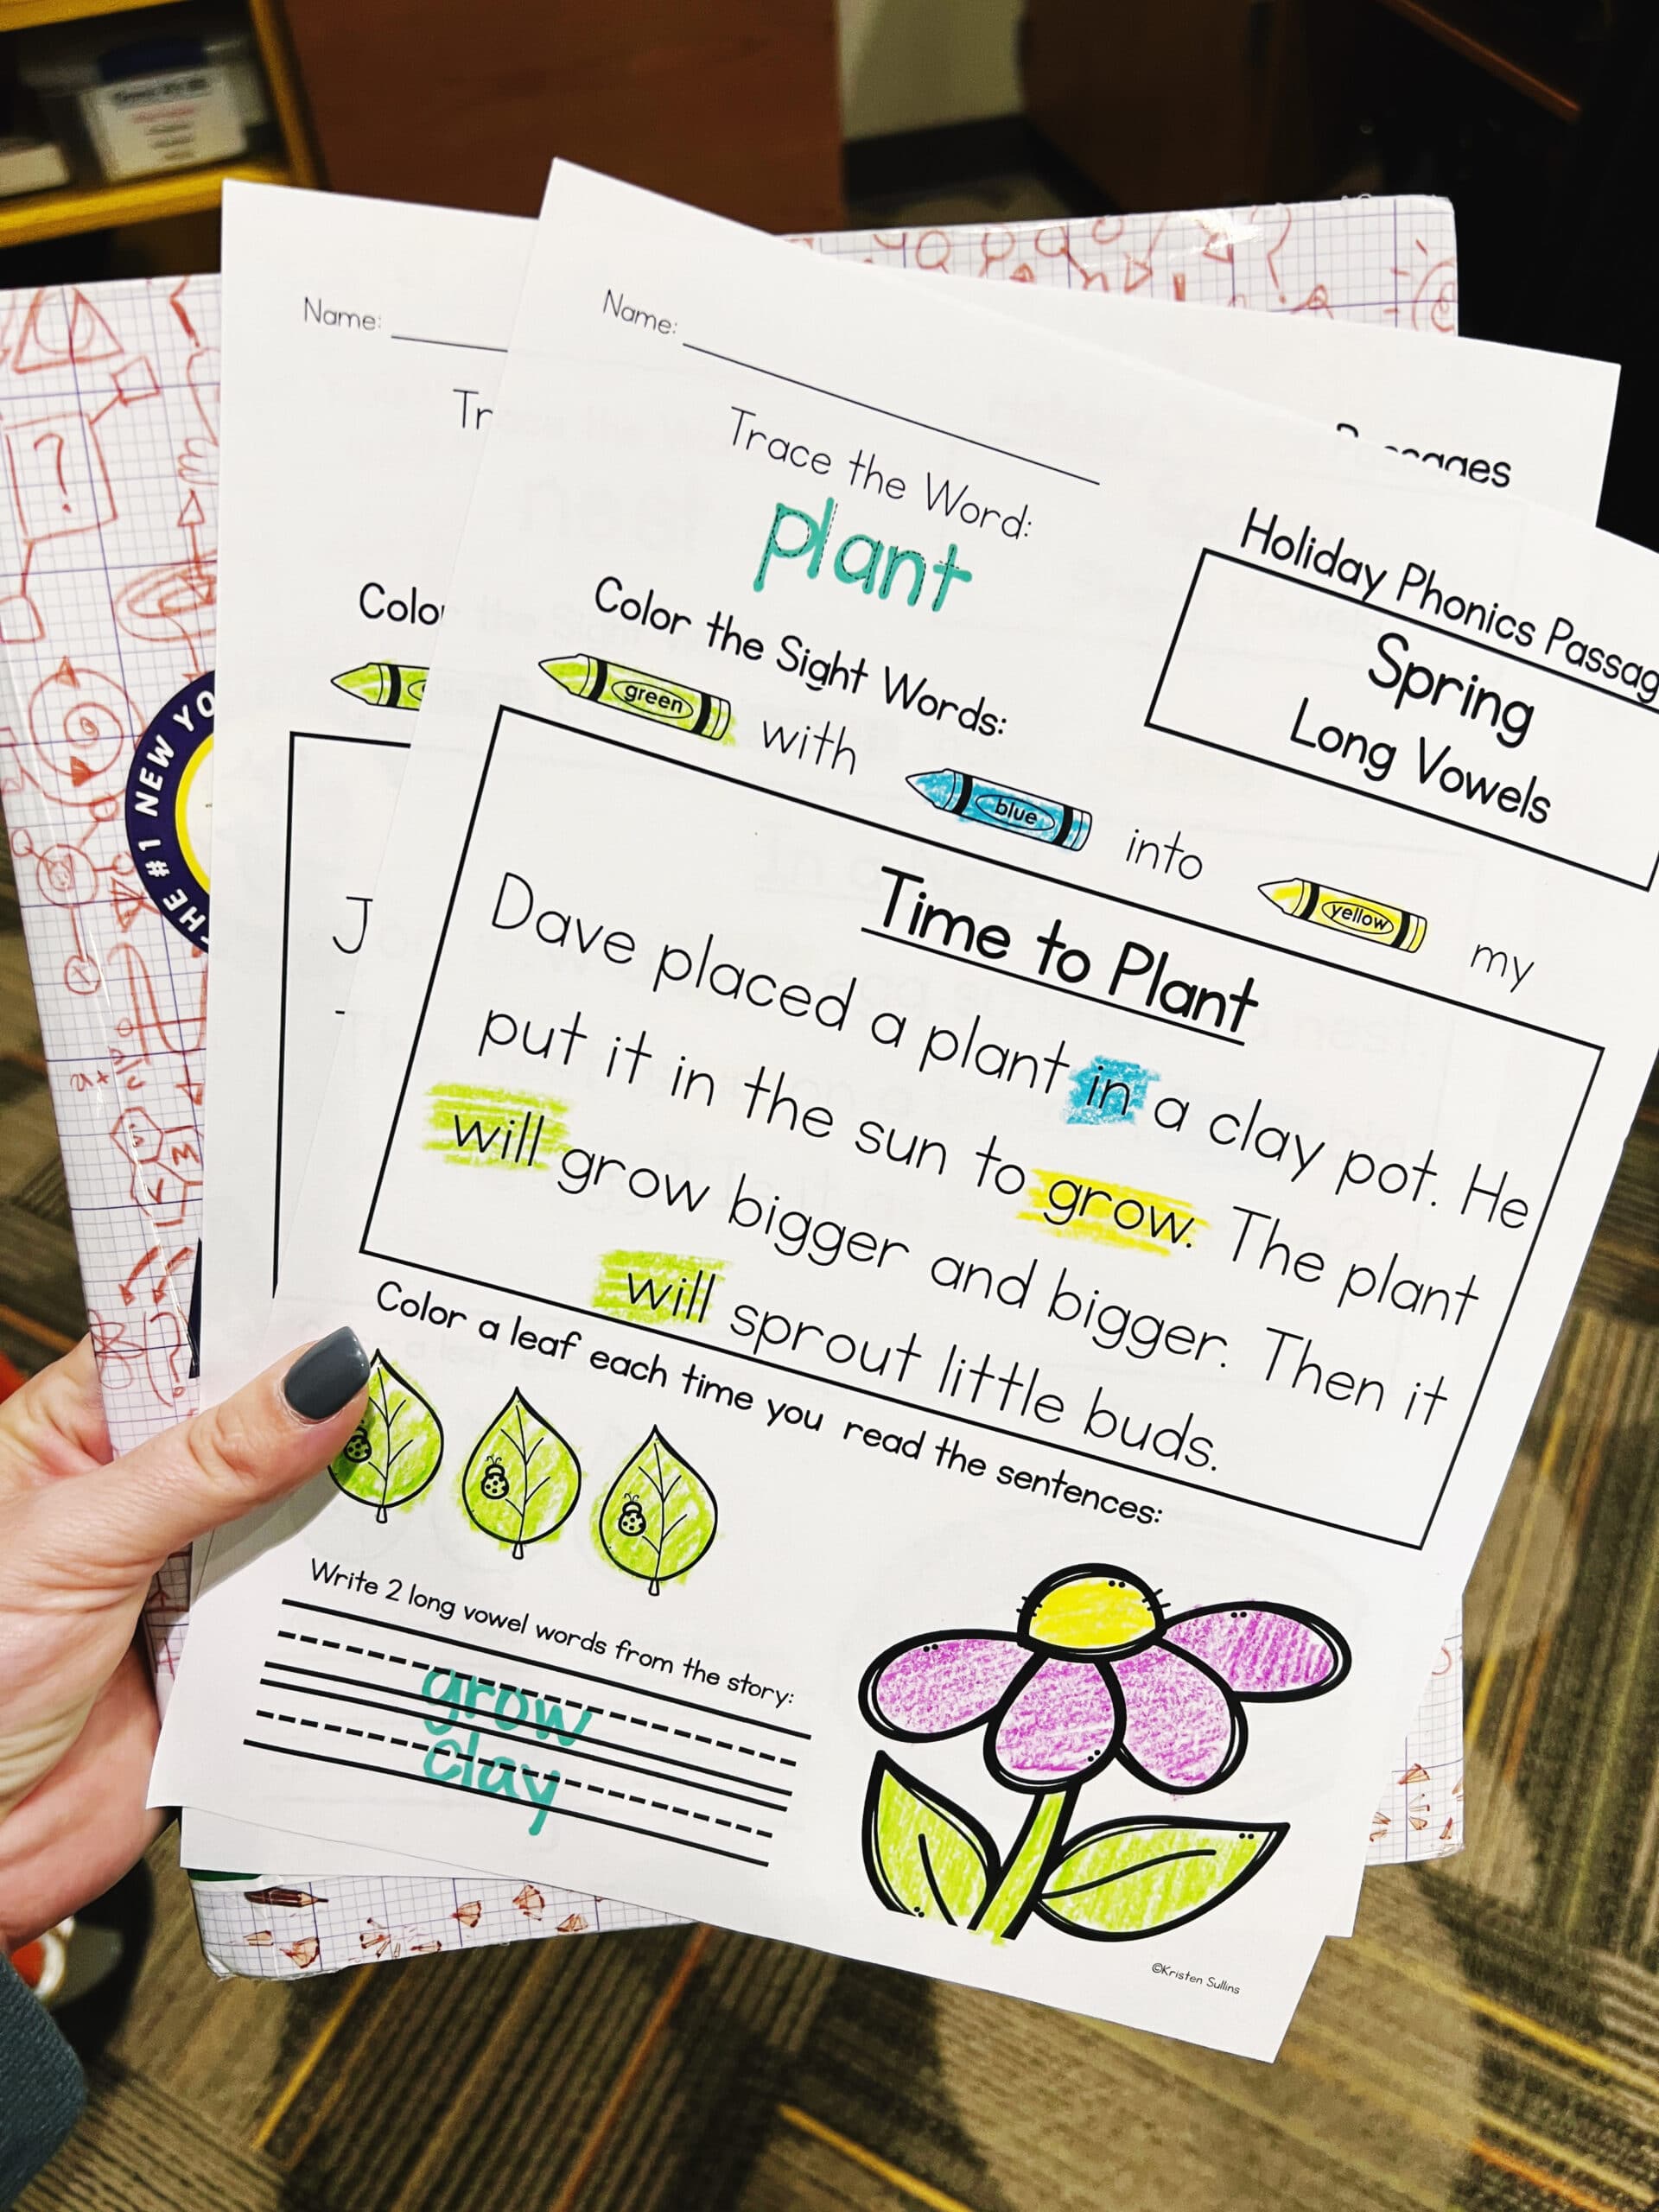 Name:
Tr
Colo
J
THE #1 NEW YO
Name:
Trace the Word:
plant
Color the Sight Words:
green with blue into yellow my
Holiday Phonics Passag
Spring
Long Vowels
Time to Plant
Dave placed a plant in a clay pot. He
put it in the sun to grow. The plant
will grow bigger and bigger. Then it
will sprout little buds.
Color a leaf each time you read the sentences:
Write 2 long vowel words from the story:
grow
clay
©Kristen Sullins